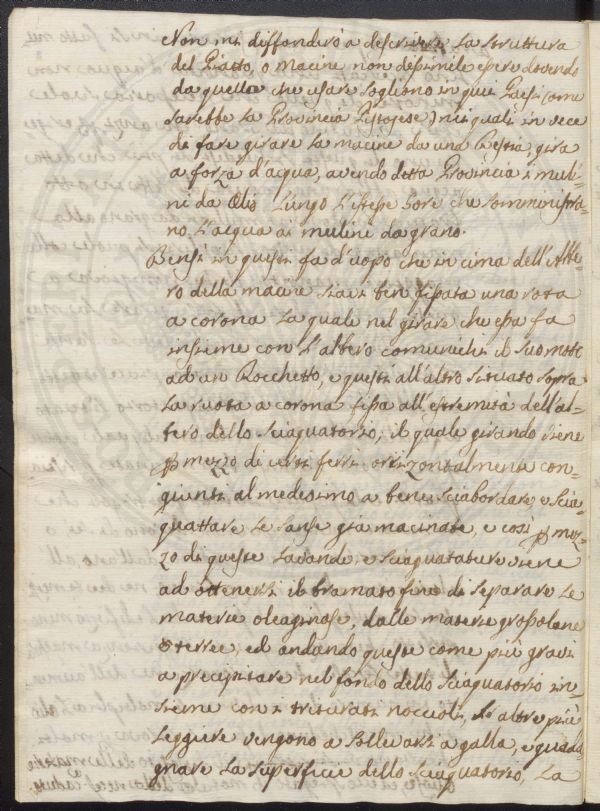 Non mi diffonderò a descrivere la struttura
del Piatto, o macine non dissimile essere dovendo
da quelle che usare sogliono in quei Paesi (come
sarebbe la Provincia Pistojese) nei quali in vece
di fare girare la macine da una Bestia, gira
a forza d'acqua, avendo detta Provincia i muli-
ni da Olio lungo l'istesse Gore che somministra-
no l'acqua ai mulini da grano.
Bensì in questi fa d'uopo che in cima dell'Albe-
ro della macine siavi ben fissata una rota
a corona la quale nel girare che essa fa
insieme con l'albero comunichi il suo moto
ad un Rocchetto, e questi all'altro situato sopra
la ruota a corona fissa all'estremità dell'al-
bero dello sciaguatorio, il quale girando viene
p mezzo di certi ferri orizontalmente con-
giunti al medesimo a bene sciabordare, e scia-
guattare le sanse già macinate, e così p mez-
zo di queste lavande, e sciaguatature viene
ad ottenersi il bramato fine di separare le
materie oleaginose, dalle materie grossolane
e terree, ed andando queste come più gravi
a precipitare nel fondo dello sciaguatorio in-
sieme con i triturati noccioli, le altre più
leggiere vengono a sollevarsi a galla, e guada-
gnare la superficie dello sciaguatorio, la